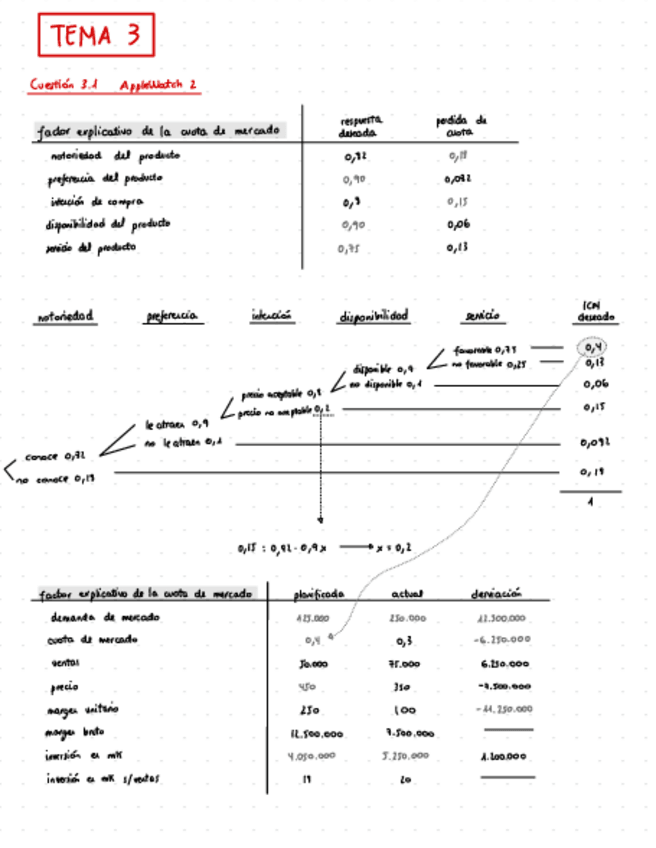 TEMA 3
Cuestión 3.1 AppleWatch 2
factor explicativo de la cuota de mercado respuesta deseada perdida de cuota
notoriedad del producto 0,82 0,18
preferencia del producto 0,90 0,082
intención de compra 0,8 0,15
disponibilidad del producto 0,90 0,06
servicio del producto 0,75 0,13
notoriedad preferencia intención disponibilidad servicio ICM deseado
favorable 0,75 0,4
no favorable 0,25 0,13
disponible 0,9
no disponible 0,1 0,06
precio aceptable 0,8
precio no aceptable 0,2 0,15
le atraen 0,9
no le atraen 0,1 0,082
conoce 0,82
no conoce 0,18 0,18
1
0,15 = 0,82 · 0,9 x → x = 0,2
factor explicativo de la cuota de mercado planificada actual desviación
demanda de mercado 125.000 250.000 12.500.000
cuota de mercado 0,4 0,3 -6.250.000
ventas 50.000 75.000 6.250.000
precio 450 350 -7.500.000
margen unitario 250 100 -11.250.000
margen bruto 12.500.000 7.500.000
inversión en mK 4.050.000 5.250.000 1.200.000
inversión en mK s/ventas 18 20